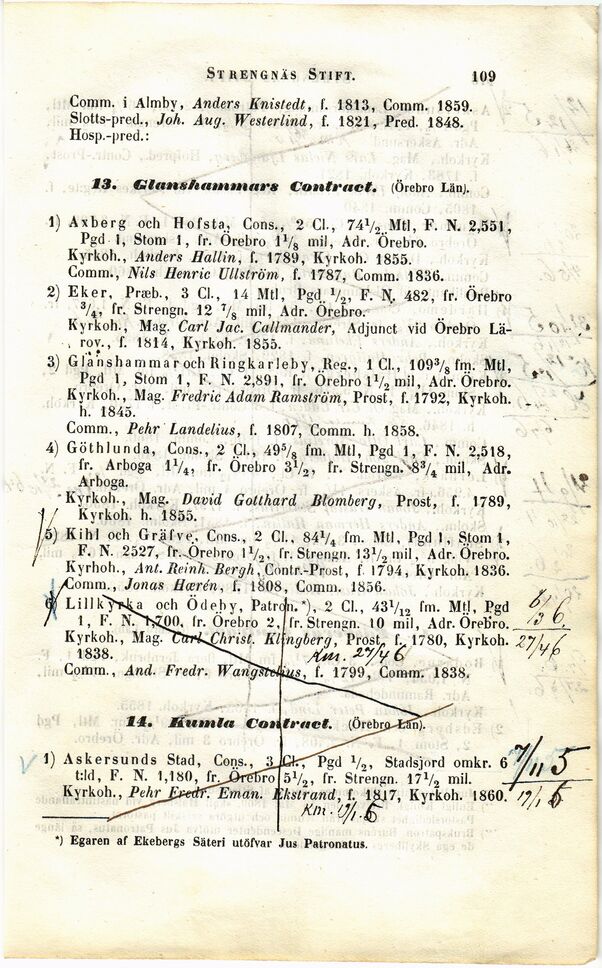 STRENGNÄS STIFT. 109
Comm. i Almby, Anders Knistedt, f. 1813, Comm. 1859.
Slotts-pred., Joh. Aug. Westerlind, f. 1821, Pred. 1848.
Hosp.-pred.:
13. Glanshammars Contract. (Örebro Län).
1) Axberg och Hofsta, Cons., 2 Cl., 74 1/2 Mtl, F. N. 2,551,
Pgd 1, Stom 1, fr. Örebro 1 1/8 mil, Adr. Örebro.
Kyrkoh., Anders Hallin, f. 1789, Kyrkoh. 1855.
Comm., Nils Henric Ullström, f. 1787, Comm. 1836.
2) Eker, Præb., 3 Cl., 14 Mtl, Pgd 1/2, F. N. 482, fr. Örebro
3/4, fr. Strengn. 12 7/8 mil, Adr. Örebro.
Kyrkoh., Mag. Carl Jac. Callmander, Adjunct vid Örebro Lä-
rov., f. 1814, Kyrkoh. 1855.
3) Glanshammar och Ringkarleby, Reg., 1 Cl., 109 3/8 fm. Mtl,
Pgd 1, Stom 1, F. N. 2,891, fr. Örebro 1 1/2 mil, Adr. Örebro.
Kyrkoh., Mag. Fredric Adam Ramström, Prost, f. 1792, Kyrkoh.
h. 1845.
Comm., Pehr Landelius, f. 1807, Comm. h. 1858.
4) Göthlunda, Cons., 2 Cl., 49 5/8 fm. Mtl, Pgd 1, F. N. 2,518,
fr. Arboga 1 1/4, fr. Örebro 3 1/2, fr. Strengn. 8 3/4 mil, Adr.
Arboga.
Kyrkoh., Mag. David Gotthard Blomberg, Prost, f. 1789,
Kyrkoh. h. 1855.
5) Kihl och Gräfve, Cons., 2 Cl., 84 1/4 fm. Mtl, Pgd 1, Stom 1,
F. N. 2527, fr. Örebro 1 1/2, fr. Strengn. 13 1/2 mil, Adr. Örebro.
Kyrhoh., Ant. Reinh. Bergh, Contr.-Prost, f. 1794, Kyrkoh. 1836.
Comm., Jonas Hærén, f. 1808, Comm. 1856.
6) Lillkyrka och Ödeby, Patron.*), 2 Cl., 43 1/12 fm. Mtl, Pgd
1, F. N. 1,700, fr. Örebro 2, fr. Strengn. 10 mil, Adr. Örebro.
Kyrkoh., Mag. Carl Christ. Klingberg, Prost, f. 1780, Kyrkoh. 27/4 6
1838. Km. 27/4 6
Comm., And. Fredr. Wangstelius, f. 1799, Comm. 1838.
14. Kumla Contract. (Örebro Län).
1) Askersunds Stad, Cons., 3 Cl., Pgd 1/2, Stadsjord omkr. 6 7/11 5
t:ld, F. N. 1,180, fr. Örebro 5 1/2, fr. Strengn. 17 1/2 mil.
Kyrkoh., Pehr Fredr. Eman. Ekstrand, f. 1817, Kyrkoh. 1860.
Km.
*) Egaren af Ekebergs Säteri utöfvar Jus Patronatus.